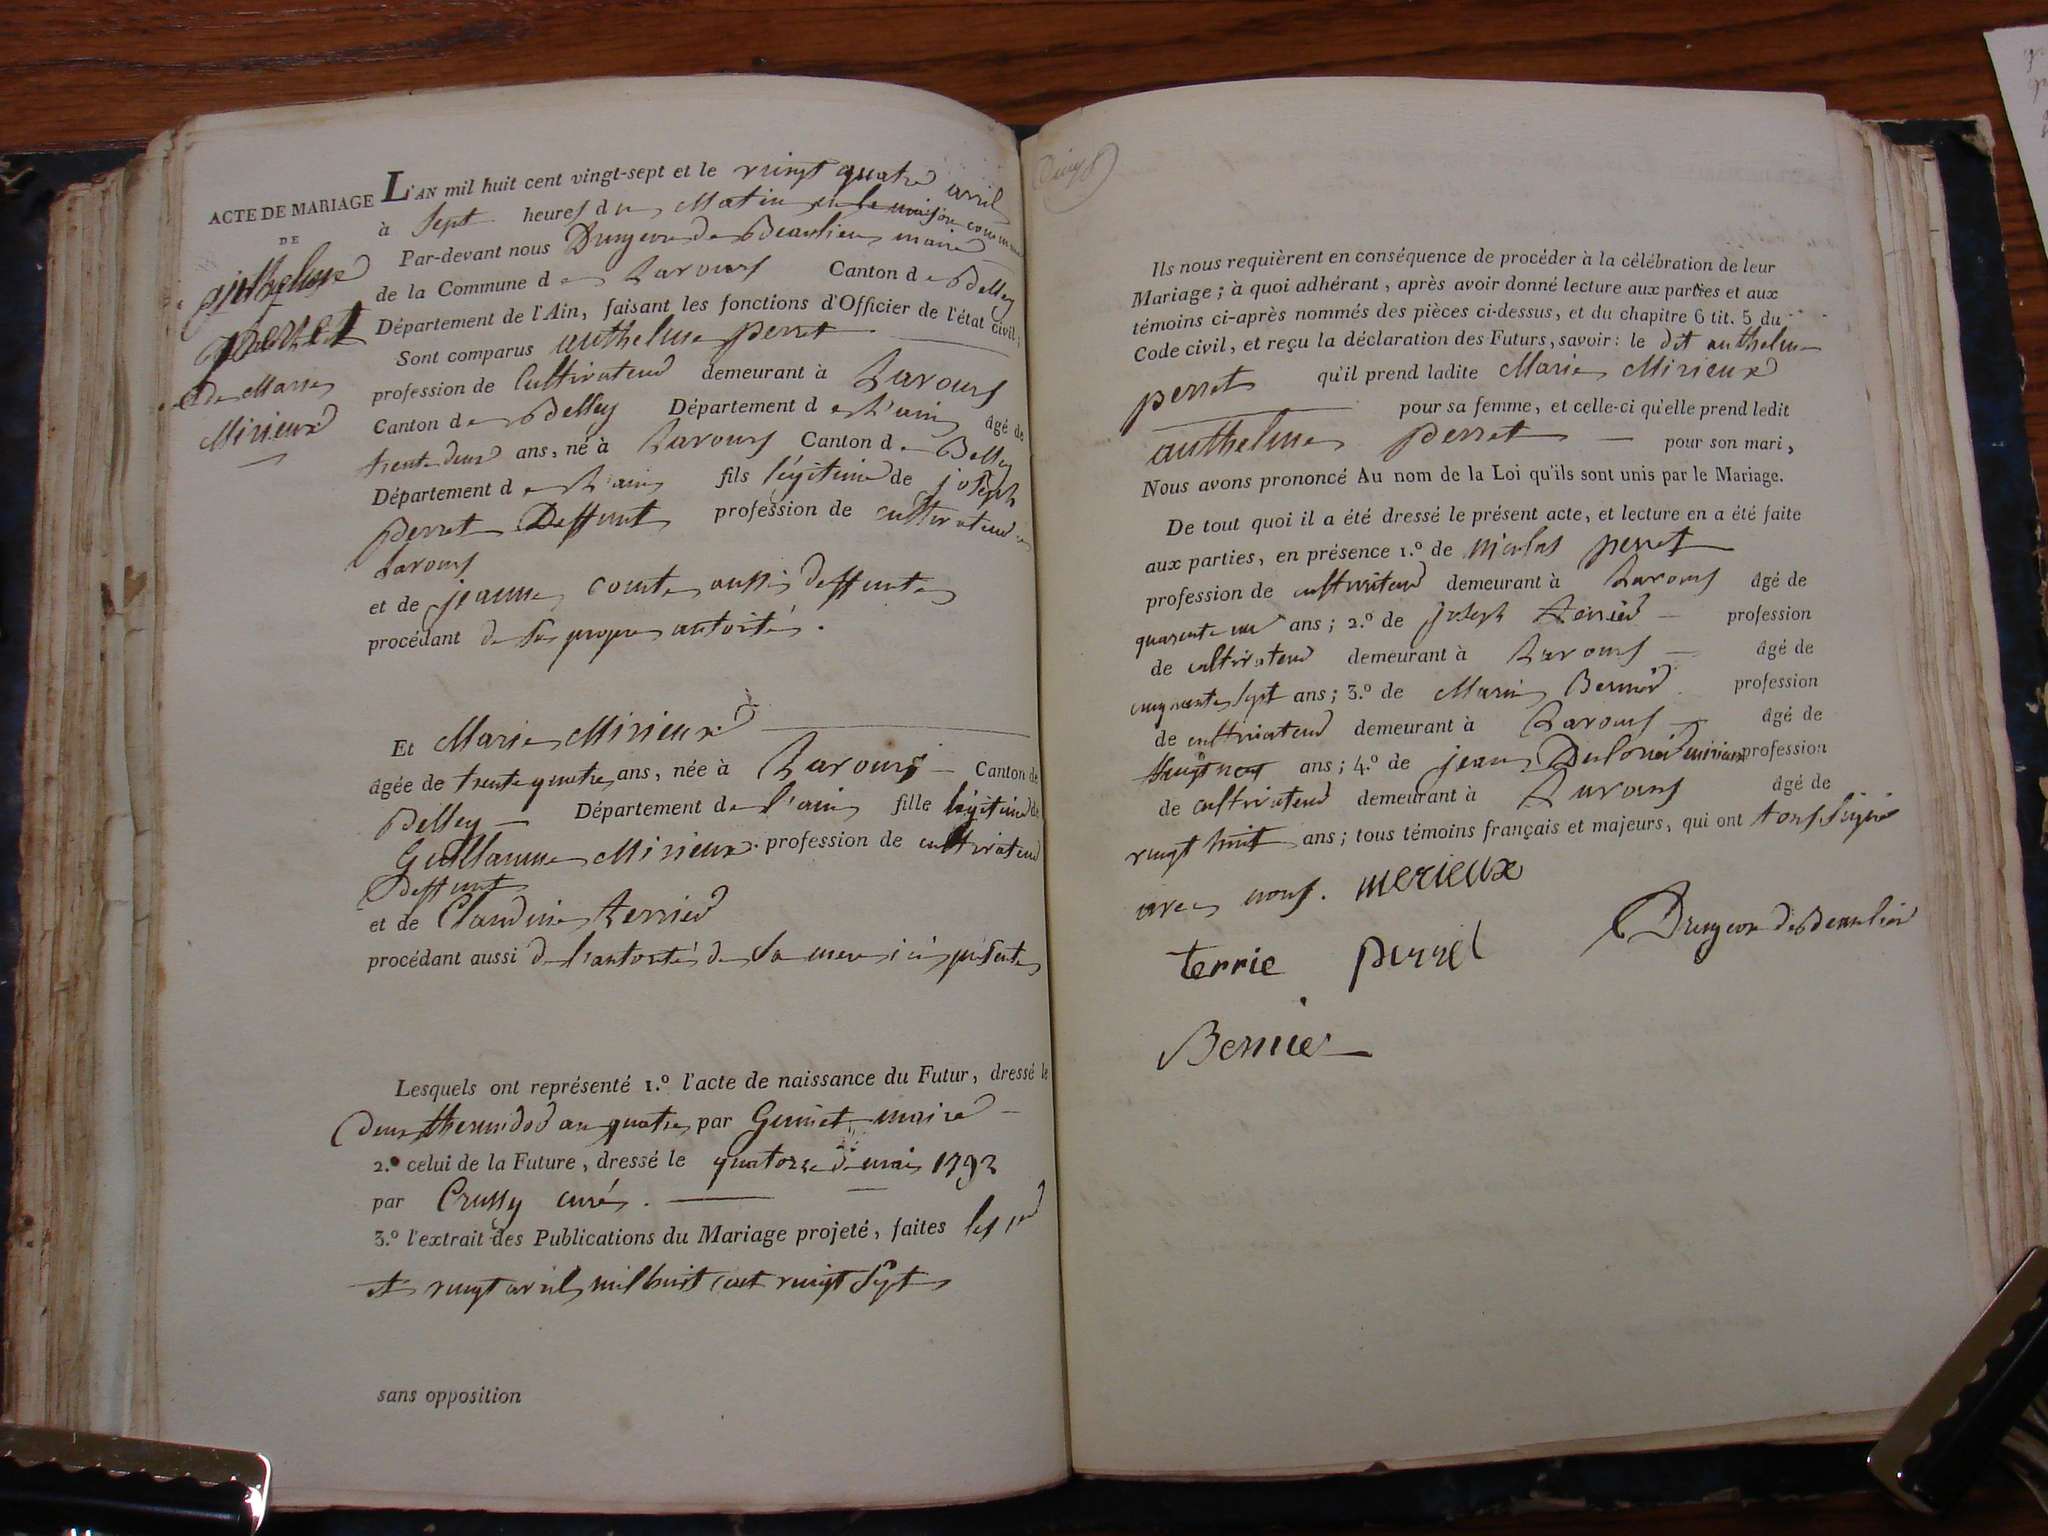 ACTE DE MARIAGE
DE
anthelme
perret
& de Marie
Mirieux
L'AN mil huit cent vingt-sept et le vingt quatre avril
à sept heures du Matin en la maison commune
Par-devant nous Drugeon de Beaulieu maire
de la Commune de Lavours Canton de Belley
Département de l'Ain, faisant les fonctions d'Officier de l'état civil;
Sont comparus anthelme perret
profession de Cultivateur demeurant à Lavours
Canton de Belley Département de L'ain âgé de
trente deux ans, né à Lavours Canton de Belley
Département de L'ain fils légitime de joseph
perret Deffunt profession de cultivateur
Lavours
et de jeanne comte aussi deffunte
procédant de sa propre autorité.
Et Marie Mirieux
âgée de trente quatre ans, née à Lavours Canton de
Belley Département de l'ain fille légitime de
Guillaume Mirieux profession de cultivateur
Deffunt
et de Claudine terrier
procédant aussi de l'autorité de sa mere ici présente
Lesquels ont représenté 1.º l'acte de naissance du Futur, dressé le
deux thermidor an quatre par Guinet maire
2.º celui de la Future, dressé le quatorze de mai 1793
par Crussy curé.
3.º l'extrait des Publications du Mariage projeté, faites les
et vingt avril mil huit cent vingt sept
sans opposition
Ils nous requièrent en conséquence de procéder à la célébration de leur
Mariage; à quoi adhérant, après avoir donné lecture aux parties et aux
témoins ci-après nommés des pièces ci-dessus, et du chapitre 6 tit. 5 du
Code civil, et reçu la déclaration des Futurs, savoir: le dit anthelme
perret qu'il prend ladite Marie Mirieux
pour sa femme, et celle-ci qu'elle prend ledit
anthelme perret pour son mari,
Nous avons prononcé Au nom de la Loi qu'ils sont unis par le Mariage.
De tout quoi il a été dressé le présent acte, et lecture en a été faite
aux parties, en présence 1.º de nicolas perret
profession de cultivateur demeurant à Lavours âgé de
quarante un ans; 2.º de joseph terrier profession
de cultivateur demeurant à Lavours âgé de
cinquante sept ans; 3.º de Marin Bernier profession
de cultivateur demeurant à Lavours âgé de
ans; 4.º de jean mirieux profession
de cultivateur demeurant à Lavours âgé de
vingt huit ans; tous témoins français et majeurs, qui ont tous signé
avec nous. merieux
terrie perret Drugeon de Beaulieu
Bernier